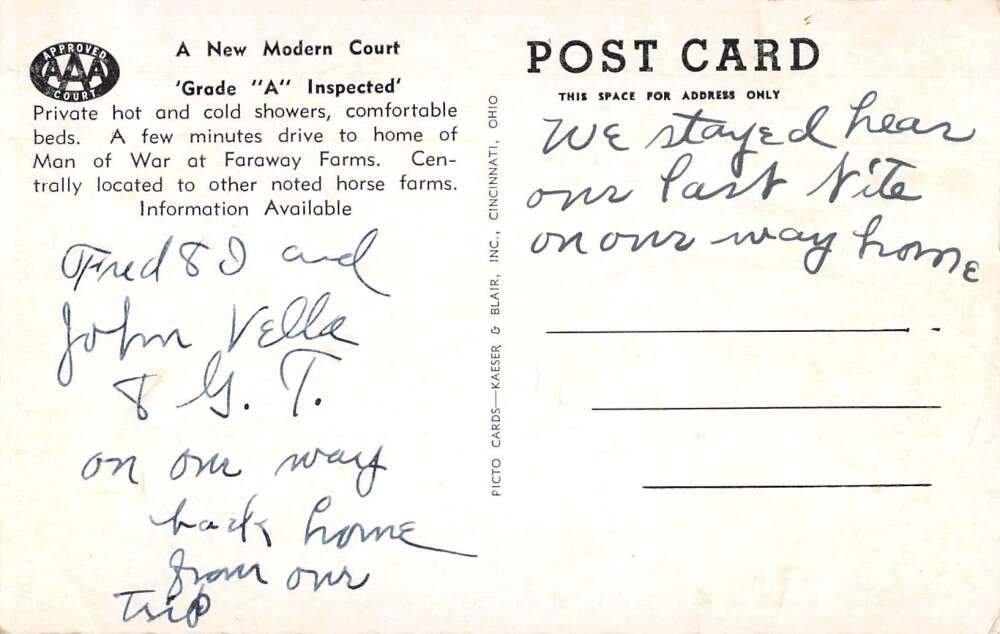 APPROVED
AAA
COURT
A New Modern Court
'Grade "A" Inspected'
Private hot and cold showers, comfortable
beds. A few minutes drive to home of
Man of War at Faraway Farms. Cen-
trally located to other noted horse farms.
Information Available
Fred & I and
John Vella
& G. T.
on our way
back home
from our
Trip
PICTO CARDS—KAESER & BLAIR, INC., CINCINNATI, OHIO
POST CARD
THIS SPACE FOR ADDRESS ONLY
We stayed hear
our last Nite
on our way home